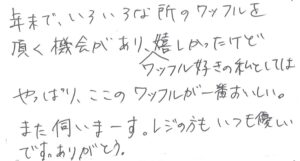 年末で、いろいろな所のワッフルを
頂く機会があり、嬉しかったけど
ワッフル好きの私としては
やっぱり、ここのワッフルが一番おいしい。
また伺いまーす。レジの方もいつも優しい
です。ありがとう。